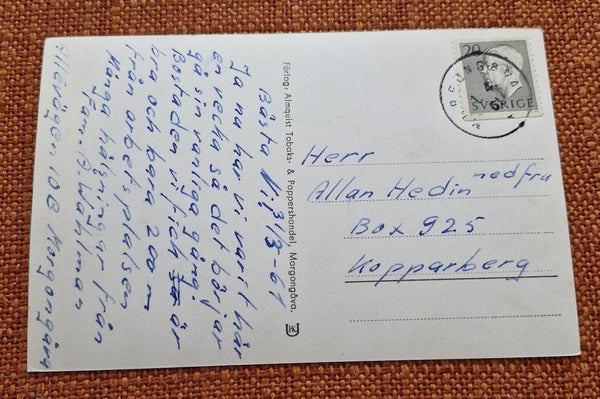 Bästa Ni. 3/3-61
Ja nu har vi varit här
en vecka så det börjar
gå sin vanliga gång.
Bostaden vi fick är
bra och bara 200 m
från arbetsplatsen
Många hälsningar från
Fam. A. Wahlman
Allévägen 10B Morgongåva
Förlag: Almquist Tobaks- & Pappershandel, Morgongåva.
20
SVERIGE
Herr
Allan Hedin med fru
Box 925
Kopparberg